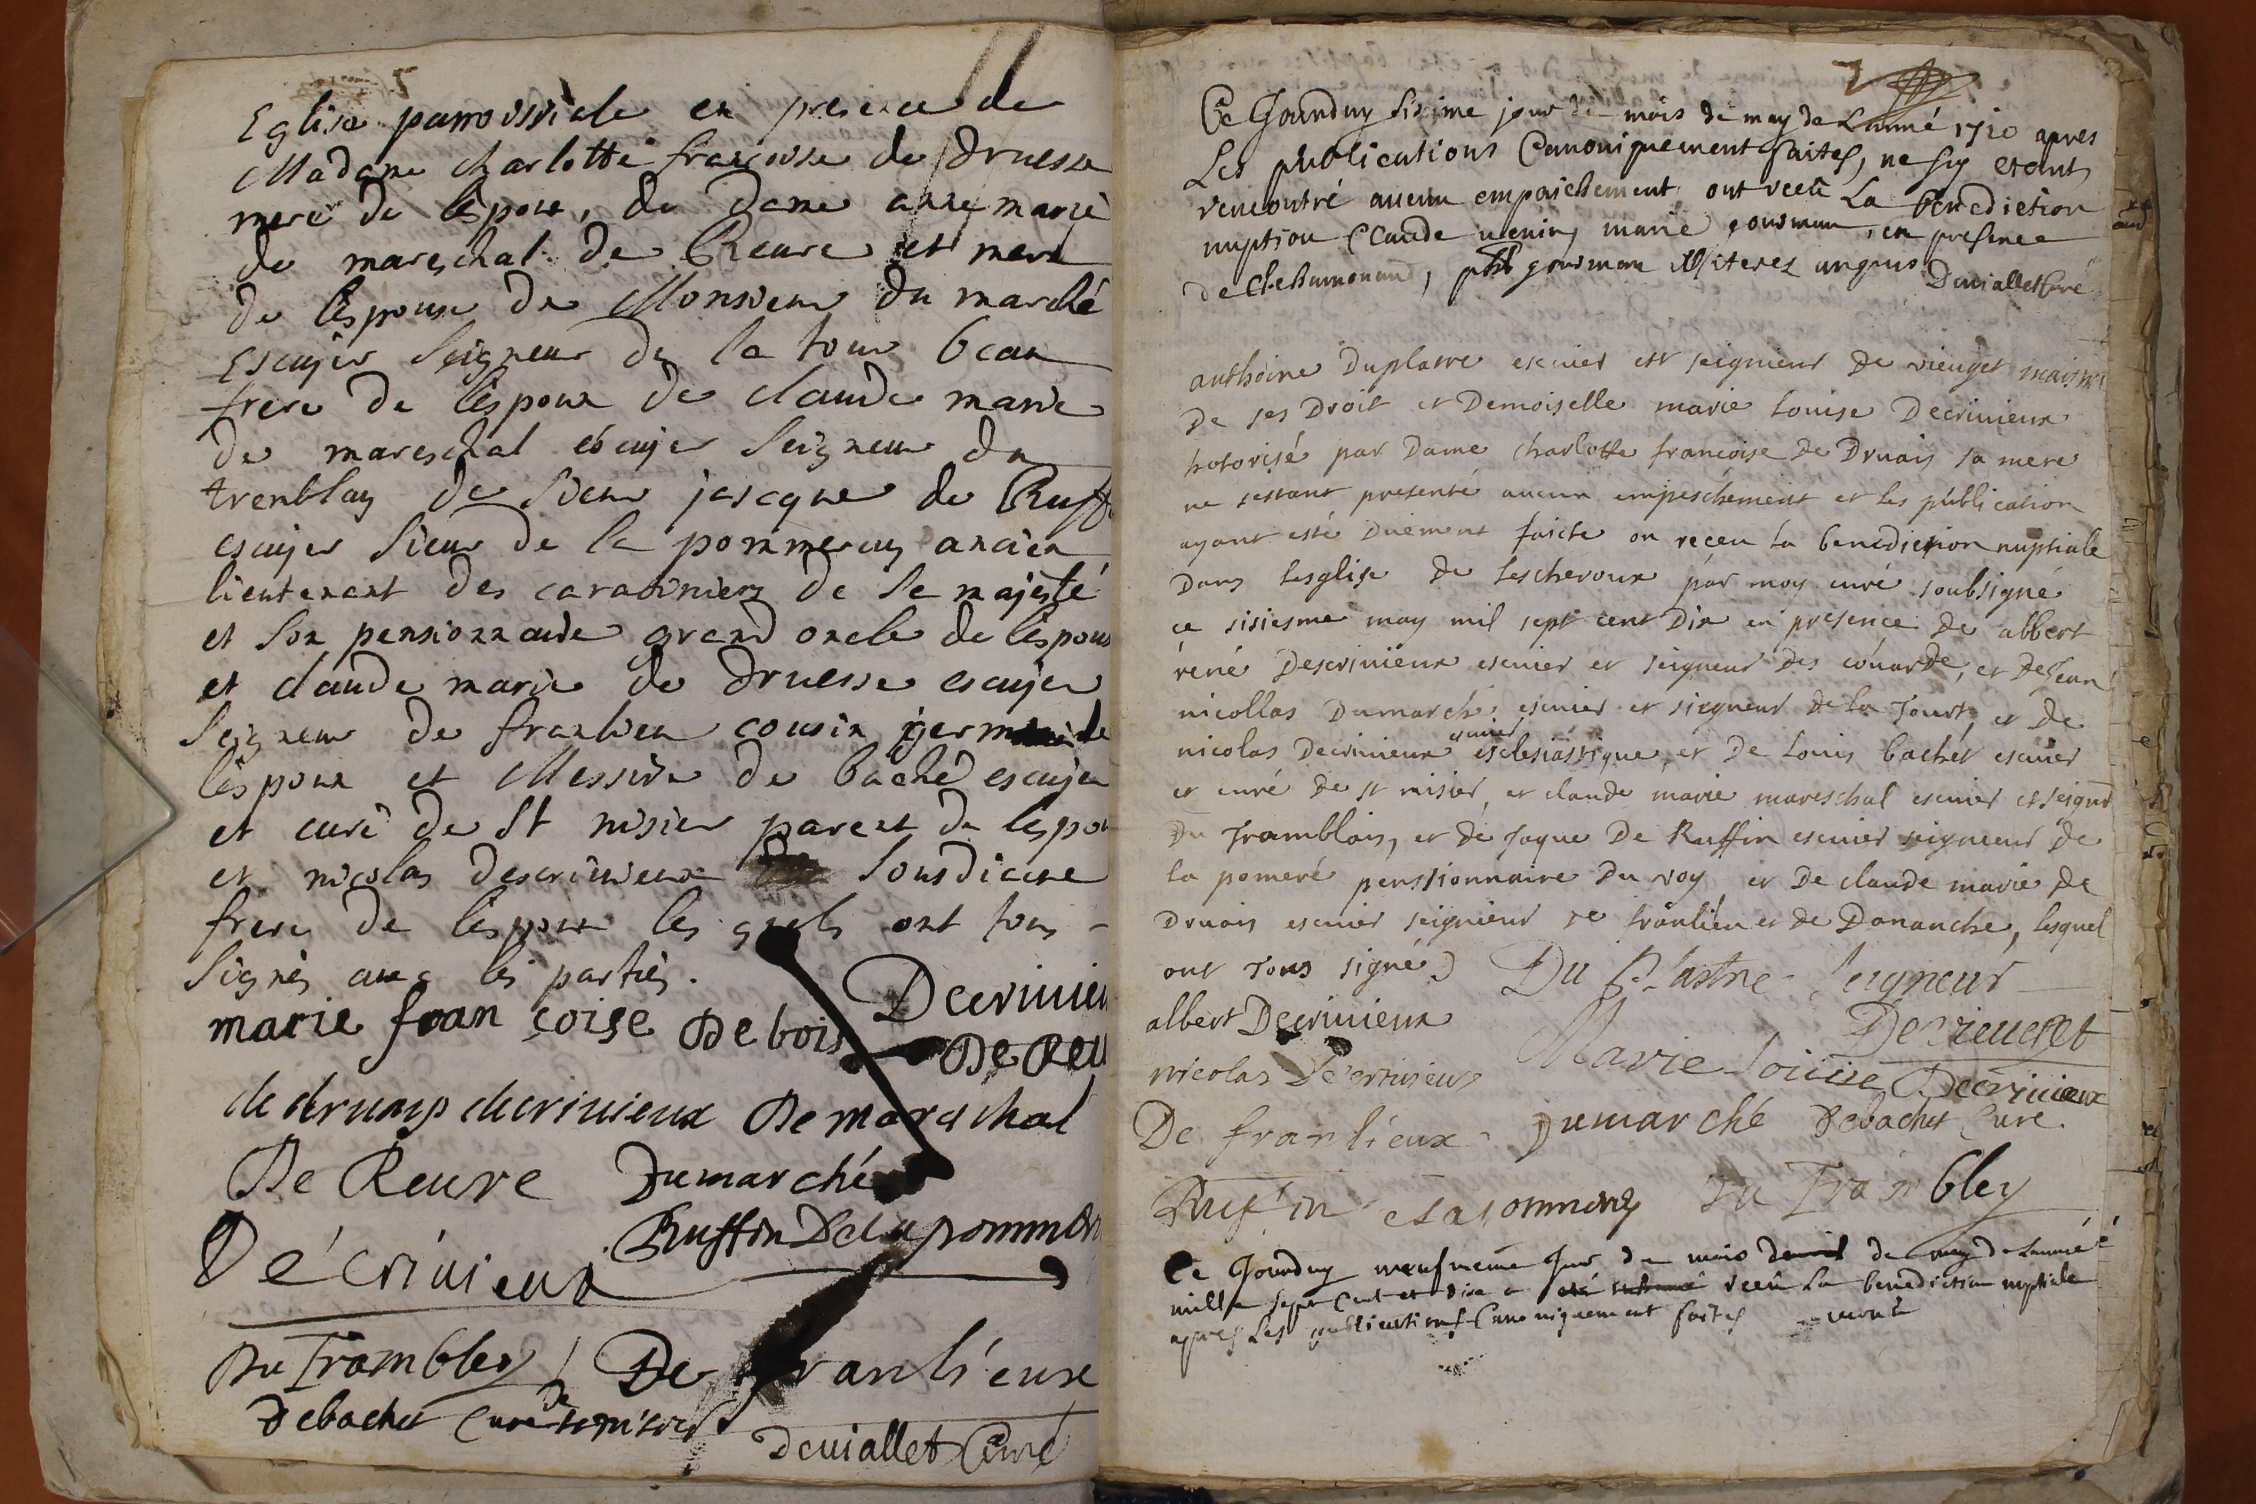 Eglise parroissiale en presence de
Madame charlotte francoise de Druesse
mere de lespoux, de dame anne marie
de mareschal de Reure et mere
de lespouse de Monsieur du marché
Escuyer Seigneur de la tour beau
frere de lespoux de claude marie
de mareschal escuyer Seigneur du
tremblay de Sieur jacque de Ruff
escuyer Sieur de la pommeray ancien
lieutenant des carabiniers de Sa majesté
et Son pensionnaire grand oncle de lespous
et claude marie de druesse escuyer
Seigneur de franlieu cousin germain de
lespoux et Messire de baché escuyer
et curé de St nisier parent de lespou
et nicolas descrivieux Sousdiacre
frere de lespoux les quels ont tous
Signés avec les parties.
marie fran çoise De bois Decrivieu
De Reu
de druays decrivieux De mareschal
De Reure Dumarché
Décrivieux Ruffin Delapommer
Du Trambley De franlieux
Debachet Curé de st nisier
Deviallet Curé
2
Ce Jourduy sixime jour de mois de may de Lanné 1710 apres
Les publications Canoniquement faites, ne sy etant
rencontré aucun empaichement ont receu La benediction
nuption Claude marie gourman, en presence
de, phb gourman Deviallet Curé
anthoine Duplatre escuier et seignieur de vieuget
De ses Droit et Demoiselle marie Louise Decrivieux
hotorisé par Dame charlotte francoise de Druais sa mere
ne sestant presenté aucun empeschement et les publication
ayant esté Duement faicte on receu la benediction nuptiale
Dans lesglise de lescheroux par moy curé soubsigné
ce sisiesme may mil sept cent Dix en presence de albert
rené Descrivieux escuier et seigneur des couarde, et de Jean
nicollas Dumarché escuier et siegneur de la Tourt, et de
nicolas Decrivieux escuier esclesiastique, et de Louis bachet escuier
et curé de st nisier, et claude marie mareschal escuier et seignr
du Tramblois, et de Jaque De Ruffin escuier seigneur de
la pomeré penssionnaire Du roy et De claude marie de
Druais escuier seignieur de franlieu et de Dananche, lesquel
ont tous signé) Du Plastre Seigneur
albert Decrivieux De vieuget
nicolas Decrivieux Marie Louise Decrivieux
De franlieux Dumarché Debachet Curé
Ruffin Du Trambley
Ce Jourduy neufieme Jour du mois de may de Lanneé
mille sept Cent et dix a receu La benediction nuptiale
apres Les publications Canoniquement faites